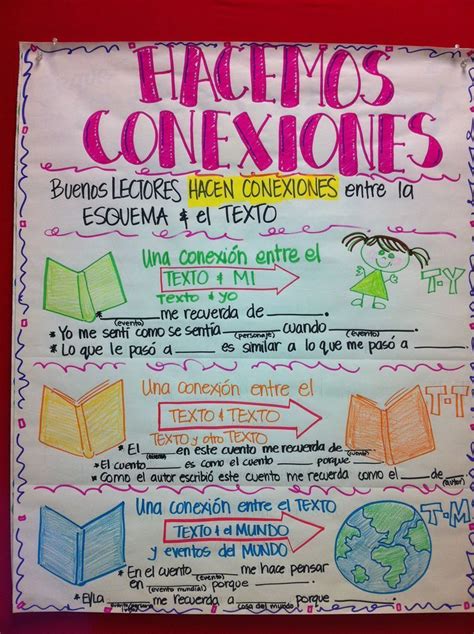 HACEMOS
CONEXIONES
BUENOS LECTORES HACEN CONEXIONES entre la
ESQUEMA & el TEXTO
Una conexión entre el
TEXTO & MI
TEXTO & YO
T-Y
* ____ me recuerda de ____.
(evento)
* Yo me sentí como se sentía ____ cuando ____
(personaje) (evento)
* Lo que le pasó a ____ es similar a lo que me pasó a ____
Una conexión entre el
TEXTO & TEXTO
TEXTO y otro TEXTO
T-T
* El ____ en este cuento me recuerda de ____
(evento)
* El cuento ____ es como el cuento ____ porque ____.
* Como el autor escribió este cuento me recuerda como el ____ de ____
(autor)
Una conexión entre el TEXTO
TEXTO & el MUNDO
y eventos del MUNDO
T-M
* En el cuento ____ me hace pensar
(evento)
en ____ porque ____.
(evento mundial)
* El/La ____ me recuerda a ____ porque ____.
cosa del mundo